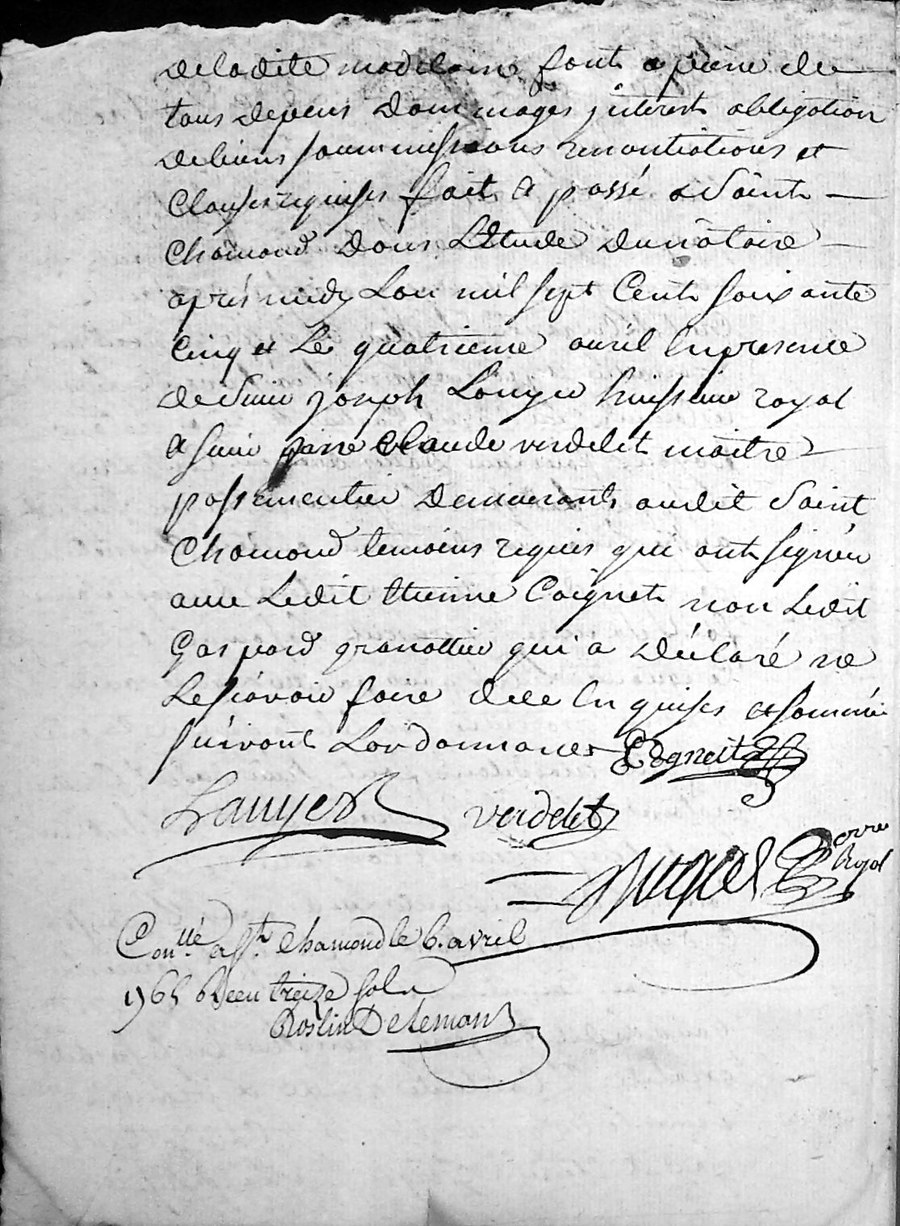 de ladite madelaine font a peine de
tous depens dommages jnterest obligation
de biens soummissions renontiations et
clauses requises fait & passé a Saint
Chamond dans L'Etude du notaire
aprés midy Lan mil sept Cent soixante
cinq et Le quatrieme avril En presence
de Sieur joseph Lauyer huissier royal
& sieur Claude verdelet maitre
passementier demeurants audit Saint
Chamond temoins requis qui ont signéu
avec Ledit Etienne Coignet non Ledit
Gaspard granottier qui a déclaré ne
Le sçavoir faire de ce Enquises et sommé
suivant Lordonnance Cogneit
Lauyer verdelet
nore Royal
Conllé a St. Chamond le 6. avril
1765 Reçu treize sols
Roslin Deleman